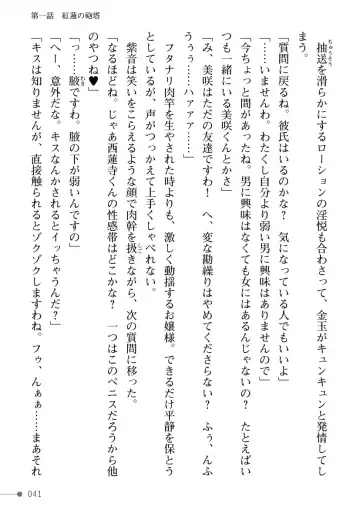 第一話 紅蓮の砲塔
抽送を滑らかにするローションの淫悦も合わさって、金玉がキュンキュンと発情してし
まう。
「質問に戻るね。彼氏はいるのかな? 気になっている人でもいいよ」
「……いませんわ。わたくし自分より弱い男に興味はありませんので」
「今ちょっと間があったね。男に興味はなくても女にはあるんじゃないの? たとえばい
つも一緒にいる美咲くんとかさ」
「み、美咲はただの友達ですわ! へ、変な勘繰りはやめてくださらない? ふぅ、んふ
ぅぅ……ハァァァー……」
フタナリ肉竿を生やされた時よりも、激しく動揺するお嬢様。できるだけ平静を保とう
としているが、声がつっかえて上手くしゃべれない。
紫音は笑いをこらえるような顔で肉幹を扱きながら、次の質問に移った。
「なるほどね。じゃあ西蓮寺くんの性感帯はどこかな? 一つはこのペニスだろうから他
のやつね♥」
「……腋ですわ。腋の下が弱いんですの」
「へー、意外だな。キスなんかされるとイッちゃうんだ?」
「キスは知りませんが、直接触られるとゾクゾクしますわね。フゥ、んぁぁ……まあそれ
041